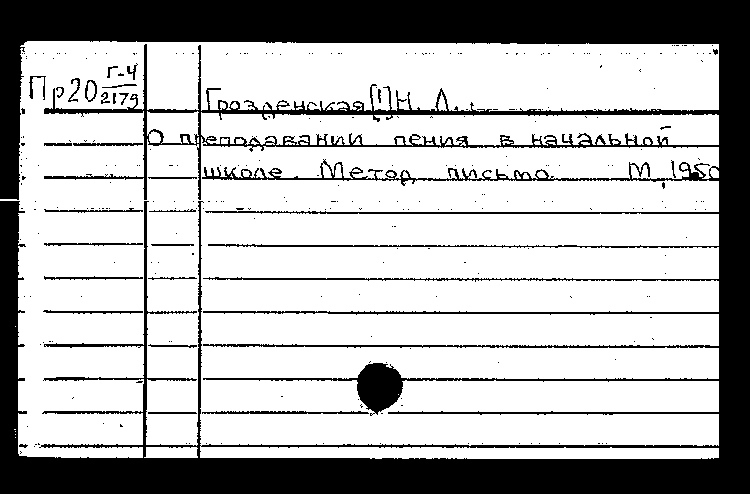 Пр20 Г-4/2179
Грозденская [!] Н. Л.
О преподавании пения в начальной
школе. Метод. письмо. М., 1950